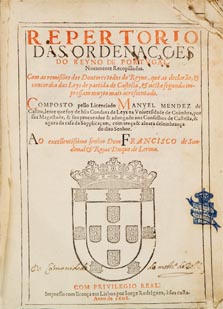 REPERTORIO
DAS ORDENAÇOES
DO REYNO DE PORTUGAL
Nouamente Recopiladas.
Com as remissões dos Doutores todos do Reyno, que as declarão, &
concordia das Leys de partida de Castella, & nesta segunda im-
pressam muyto mais acrescentado.
COMPOSTO pello Licenciado MANVEL MENDEZ de
Castro, lente que foy de hũa Conduta de Leys na Vniuersidade de Coimbra, por
sua Magestade, & seu procurador & aduogado nos Conselhos de Castella, &
agora da casa da Supplicaçam, com
do dito Senhor.
AO excellentissimo senhor Dom FRANCISCO de San-
doual & Rojas Duque de Lerma.
COM PRIVILEGIO REAL.
Impresso com licença em Lisboa por Iorge Rodriguez, à sua custa.